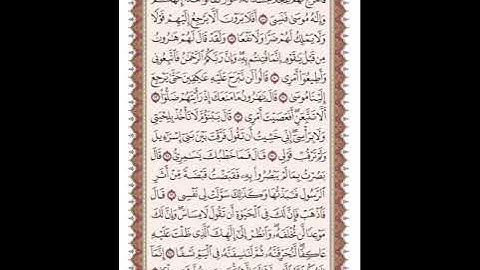 وَإِلَٰهُ مُوسَىٰ فَنَسِيَ ۝ أَفَلَا يَرَوْنَ أَلَّا يَرْجِعُ إِلَيْهِمْ قَوْلًا
وَلَا يَمْلِكُ لَهُمْ ضَرًّا وَلَا نَفْعًا ۝ وَلَقَدْ قَالَ لَهُمْ هَٰرُونُ
مِن قَبْلُ يَٰقَوْمِ إِنَّمَا فُتِنتُم بِهِۦ ۖ وَإِنَّ رَبَّكُمُ ٱلرَّحْمَٰنُ فَٱتَّبِعُونِى
وَأَطِيعُوٓا۟ أَمْرِى ۝ قَالُوا۟ لَن نَّبْرَحَ عَلَيْهِ عَٰكِفِينَ حَتَّىٰ يَرْجِعَ
إِلَيْنَا مُوسَىٰ ۝ قَالَ يَٰهَٰرُونُ مَا مَنَعَكَ إِذْ رَأَيْتَهُمْ ضَلُّوٓا۟ ۝
أَلَّا تَتَّبِعَنِ ۖ أَفَعَصَيْتَ أَمْرِى ۝ قَالَ يَبْنَؤُمَّ لَا تَأْخُذْ بِلِحْيَتِى
وَلَا بِرَأْسِىٓ ۖ إِنِّى خَشِيتُ أَن تَقُولَ فَرَّقْتَ بَيْنَ بَنِىٓ إِسْرَٰٓءِيلَ
وَلَمْ تَرْقُبْ قَوْلِى ۝ قَالَ فَمَا خَطْبُكَ يَٰسَٰمِرِىُّ ۝ قَالَ
بَصُرْتُ بِمَا لَمْ يَبْصُرُوا۟ بِهِۦ فَقَبَضْتُ قَبْضَةً مِّنْ أَثَرِ
ٱلرَّسُولِ فَنَبَذْتُهَا وَكَذَٰلِكَ سَوَّلَتْ لِى نَفْسِى ۝
قَالَ فَٱذْهَبْ فَإِنَّ لَكَ فِى ٱلْحَيَوٰةِ أَن تَقُولَ لَا مِسَاسَ ۖ وَإِنَّ لَكَ
مَوْعِدًا لَّن تُخْلَفَهُۥ ۖ وَٱنظُرْ إِلَىٰٓ إِلَٰهِكَ ٱلَّذِى ظَلْتَ عَلَيْهِ
عَاكِفًا ۖ لَّنُحَرِّقَنَّهُۥ ثُمَّ لَنَنسِفَنَّهُۥ فِى ٱلْيَمِّ نَسْفًا ۝ إِنَّمَآ